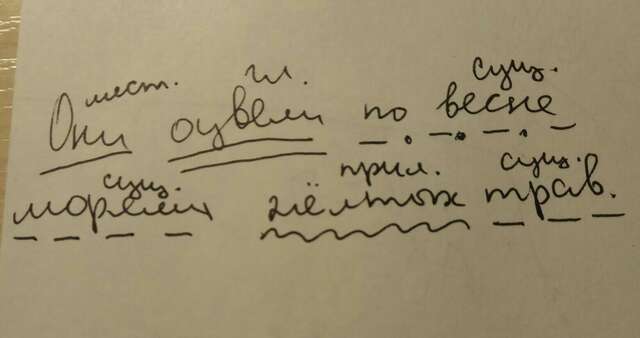 мест. гл. сущ.
Они оцвели по весне
сущ. прил. сущ.
морями жёлтых трав.